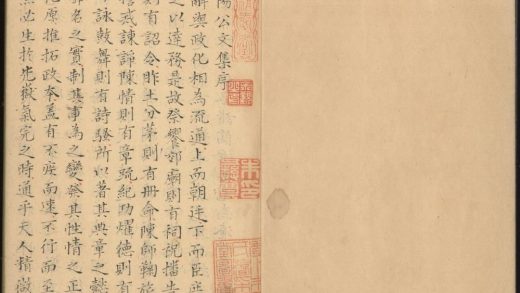 陽公文集序
辭與政化相為流通上而朝廷下而臣庶
之以達務是故祭饗郊廟則有祠祝播告
則有詔令胙土分茅則有冊命陳師鞠旅
誓戒諫諍陳情則有章疏紀功耀德則有
詠鼓舞則有詩騷所以著其典章之懿
聲名之實制其事為之變發其性情之正
化原推拓政本蓋有不疾而速不行而至
然必生於光嶽氣完之時通乎天人精微